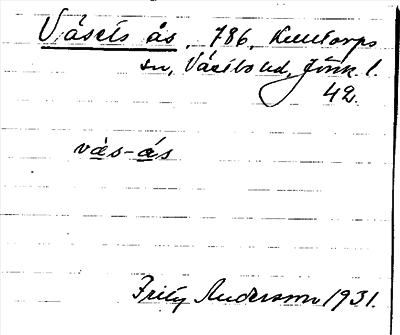 Våsets ås, 786, Kulltorps
sn, Västbo hd, Jönk. l.
42.
vås-ås
Fritz Andersson 1931.